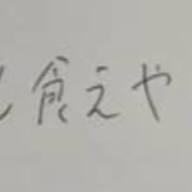 食えや